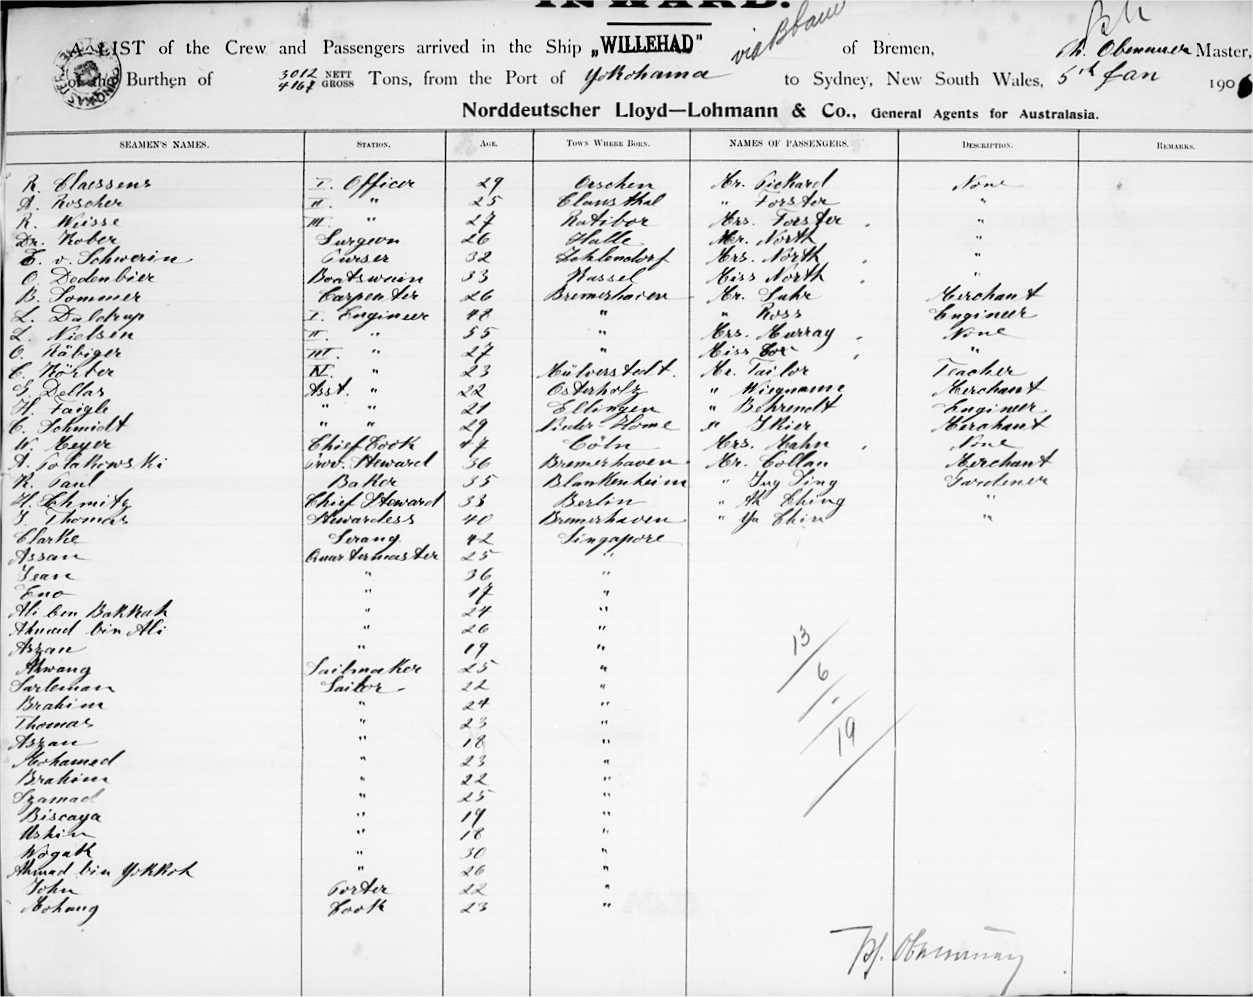 INWARD.
A LIST of the Crew and Passengers arrived in the Ship "WILLEHAD" via of Bremen, Master,
of the Burthen of 3012 NETT 4761 GROSS Tons, from the Port of Yokohama to Sydney, New South Wales, 5th Jan 190
Norddeutscher Lloyd—Lohmann & Co., General Agents for Australasia.
SEAMEN'S NAMES. STATION. AGE. TOWN WHERE BORN. NAMES OF PASSENGERS. DESCRIPTION. REMARKS.
R. Claessens I. Officer 29 Mr. Pickard None
A. Roscher II. " 25 Clausthal " Forster "
R. Wiesse III. " 27 Ratibor Mrs. Forster "
Dr. Kober Surgeon 26 Halle Mr. North "
E. v. Schwerin Purser 32 Zehlendorf Mrs. North "
O. Dedenbier Boatswain 33 Kassel Miss North "
B. Sommer Carpenter 26 Bremerhaven Mr. Suhr Merchant
L. Daldrup I. Engineer 48 " " Ross Engineer
L. Nielsen II. " 55 " Mrs. Murray None
O. Räbiger III. " 27 " Miss Cox "
C. Körber IV. " 23 Mülverstedt. Mr. Tailor Teacher
Dellas Asst. " 22 Osterholz " Merchant
H. Faigle " " 21 Ellingen " Behrendt Engineer
C. Schmidt " " 29 " Merchant
W. Meyer Chief Cook 47 Cöln Mrs. Hahn None
A. Polakowski Prov. Steward 36 Bremerhaven Mr. Collan Merchant
R. Paul Baker 35 Blankenheim " Gardener
H. Schmitz Chief Steward 33 Berlin " Ah Ching "
Thomas Stewardess 40 Bremerhaven " Ya Chin "
Clarke Serang 42 Singapore
Assan Quartermaster 25 "
Jean " 36 "
Eno " 17 "
Ali ben Bakkah " 24 "
Ahmad bin Ali " 26 "
Aszan " 19 "
Awang Sailmaker 25 "
Sarleman Sailor 22 "
Brahim " 24 "
Thomas " 23 "
Aszan " 18 "
Mohamed " 23 "
Brahim " 22 "
Szamad " 25 "
Biscaya " 19 "
Askin " 18 "
Wogatk " 30 "
Ahmad bin Yokkoh " 26 "
John Porter 22 "
Mohang Cook 23 "
13
6
19